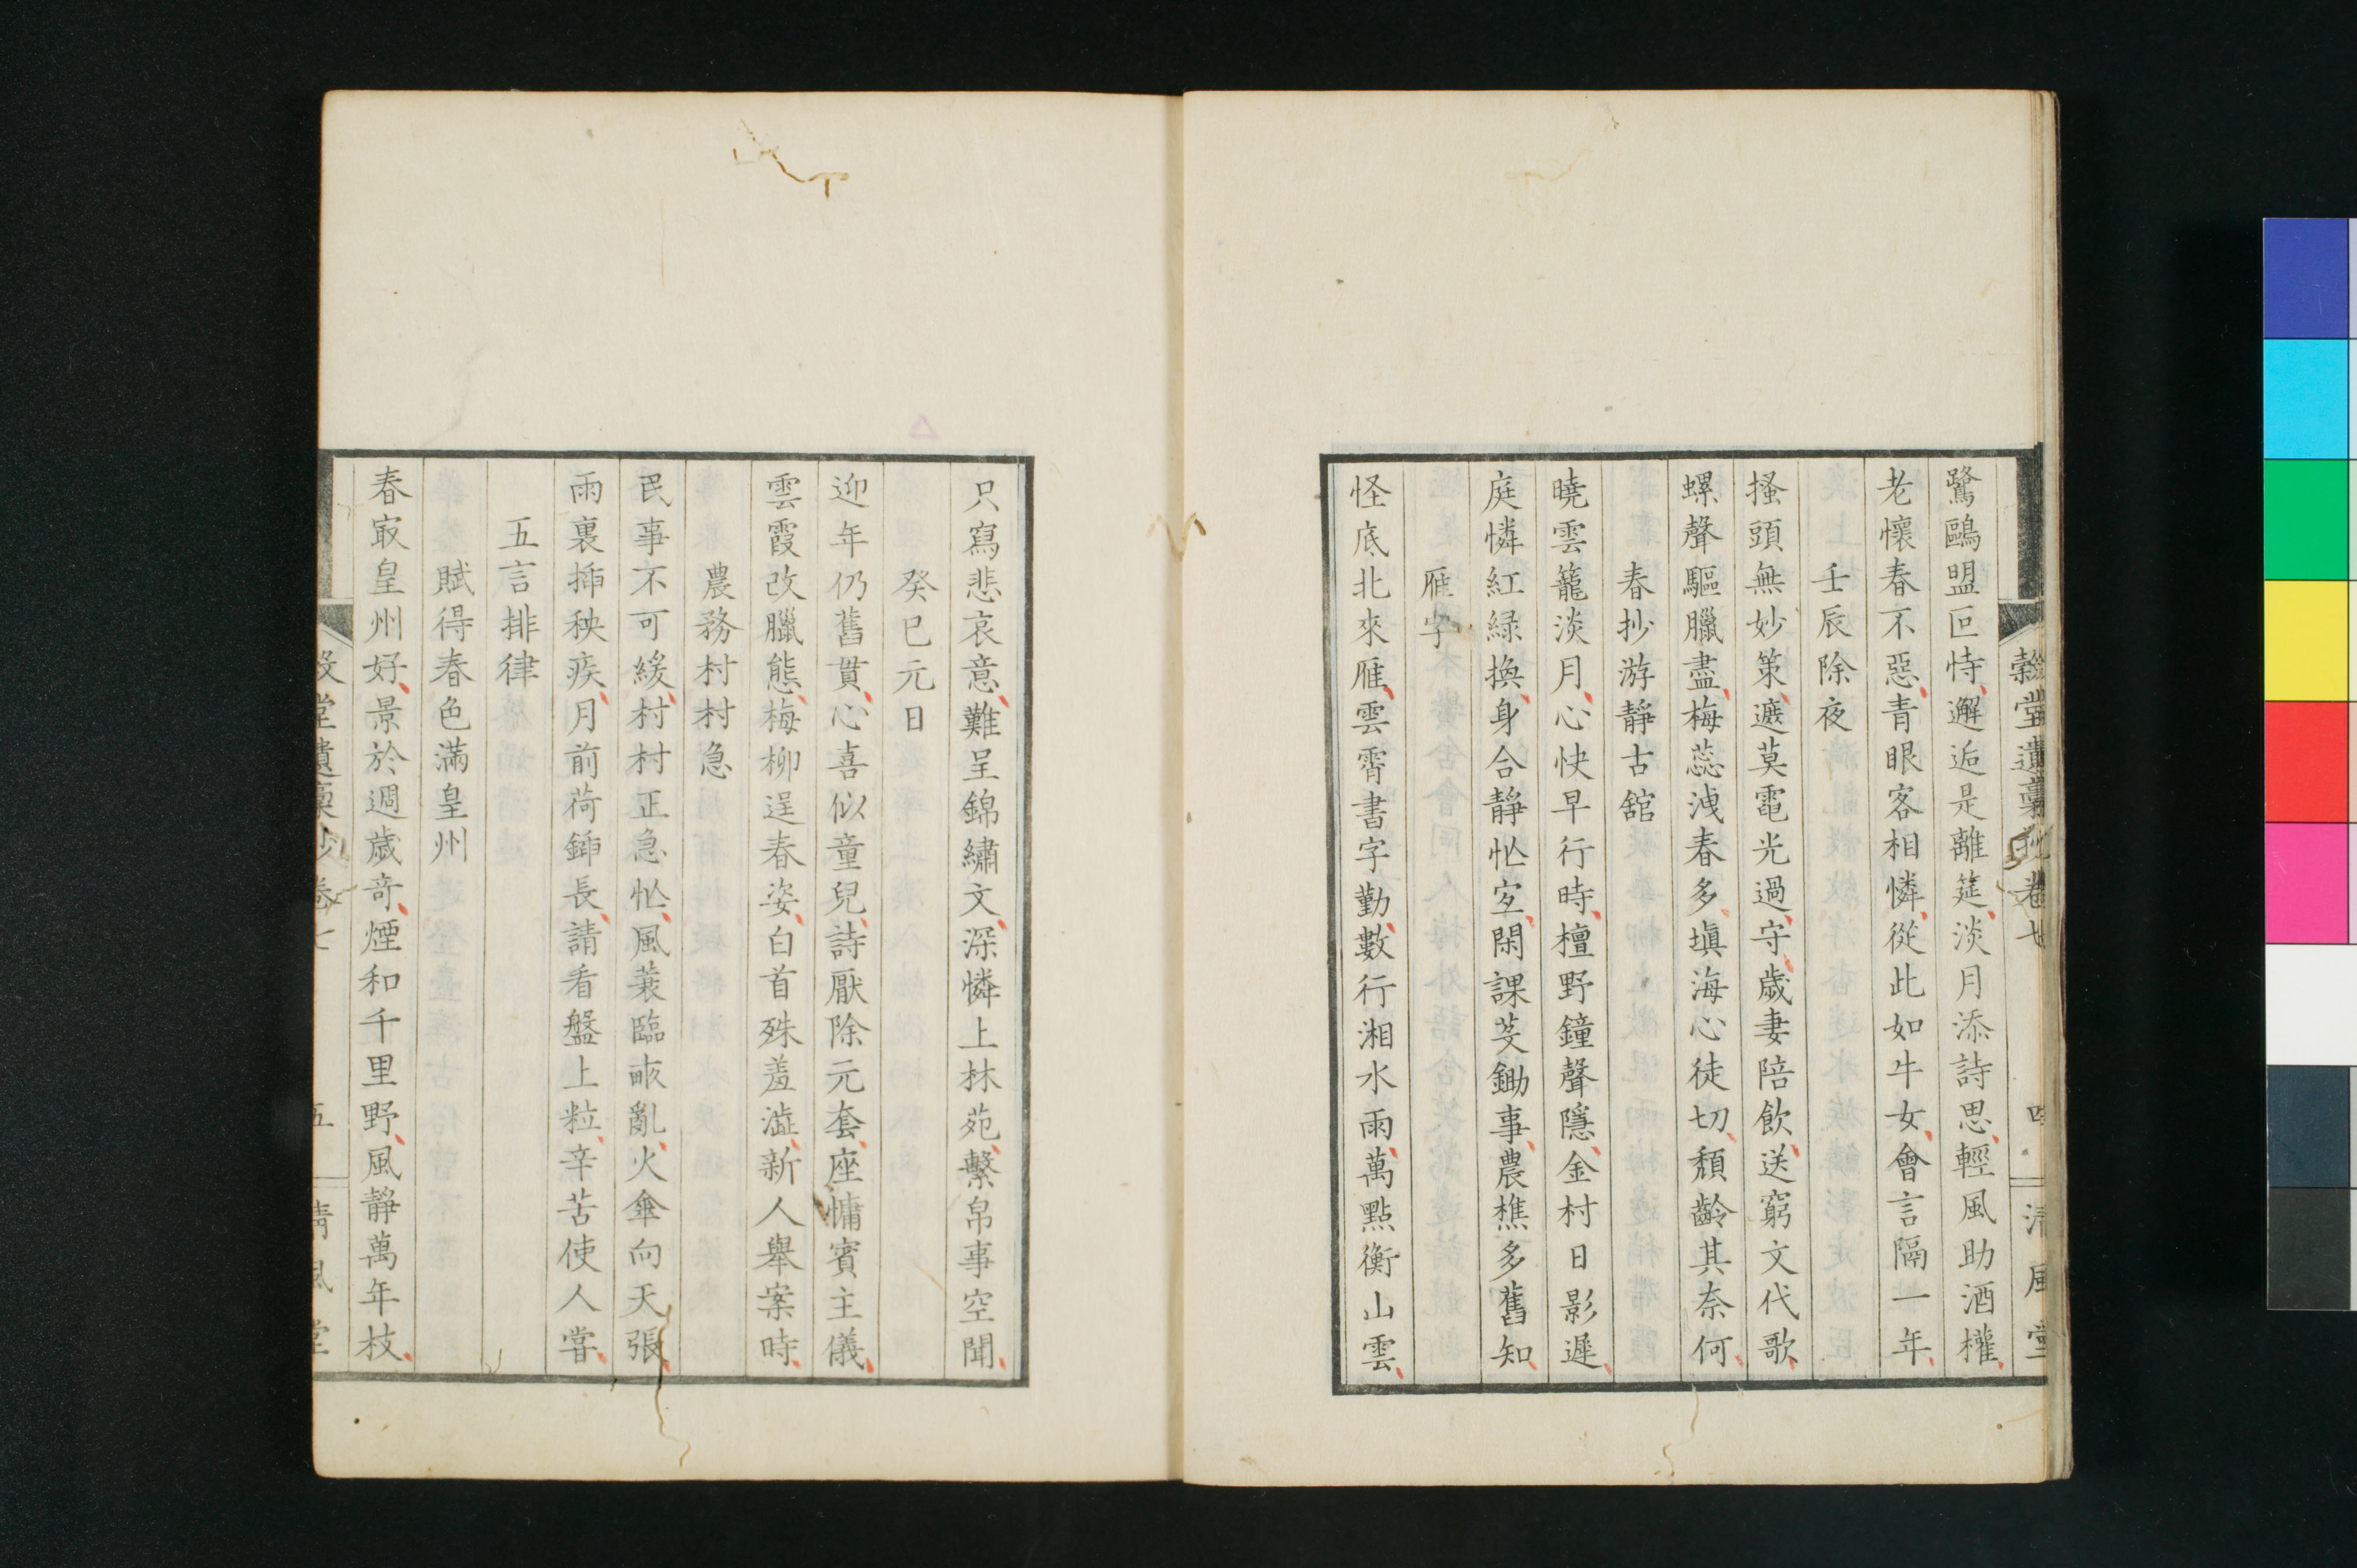 穀堂遺稾抄卷七 四 清風堂
鷺鷗盟叵恃邂逅是離筵淡月添詩思輕風助酒權
老懷春不惡青眼客相憐從此如牛女會言隔一年
壬辰除夜
搔頭無妙策遮莫電光過守歲妻陪飲送窮文代歌
螺聲驅臘盡梅蕊洩春多塡海心徒切頹齡其奈何
春抄游靜古舘
曉雲籠淡月心快早行時檀野鐘聲隱金村日影遲
庭憐紅緑換身合靜忙宜閑課芟鋤事農樵多舊知
雁字
怪底北來雁雲霄書字勤數行湘水雨萬點衡山雲
只寫悲哀意難呈錦繡文深憐上林苑繫帛事空聞
癸巳元日
迎年仍舊貫心喜似童兒詩厭除元套座慵賓主儀
雲霞改臘態梅柳逞春姿白首殊羞澁新人擧案時
農務村村急
民事不可緩村村正急忙風蓑臨畝亂火傘向天張
雨裏揷秧疾月前荷鍤長請看盤上粒辛苦使人甞
五言排律
賦得春色滿皇州
春㝡皇州好景於週歲竒煙和千里野風靜萬年枝
堂遺稾抄卷七 五 清風堂